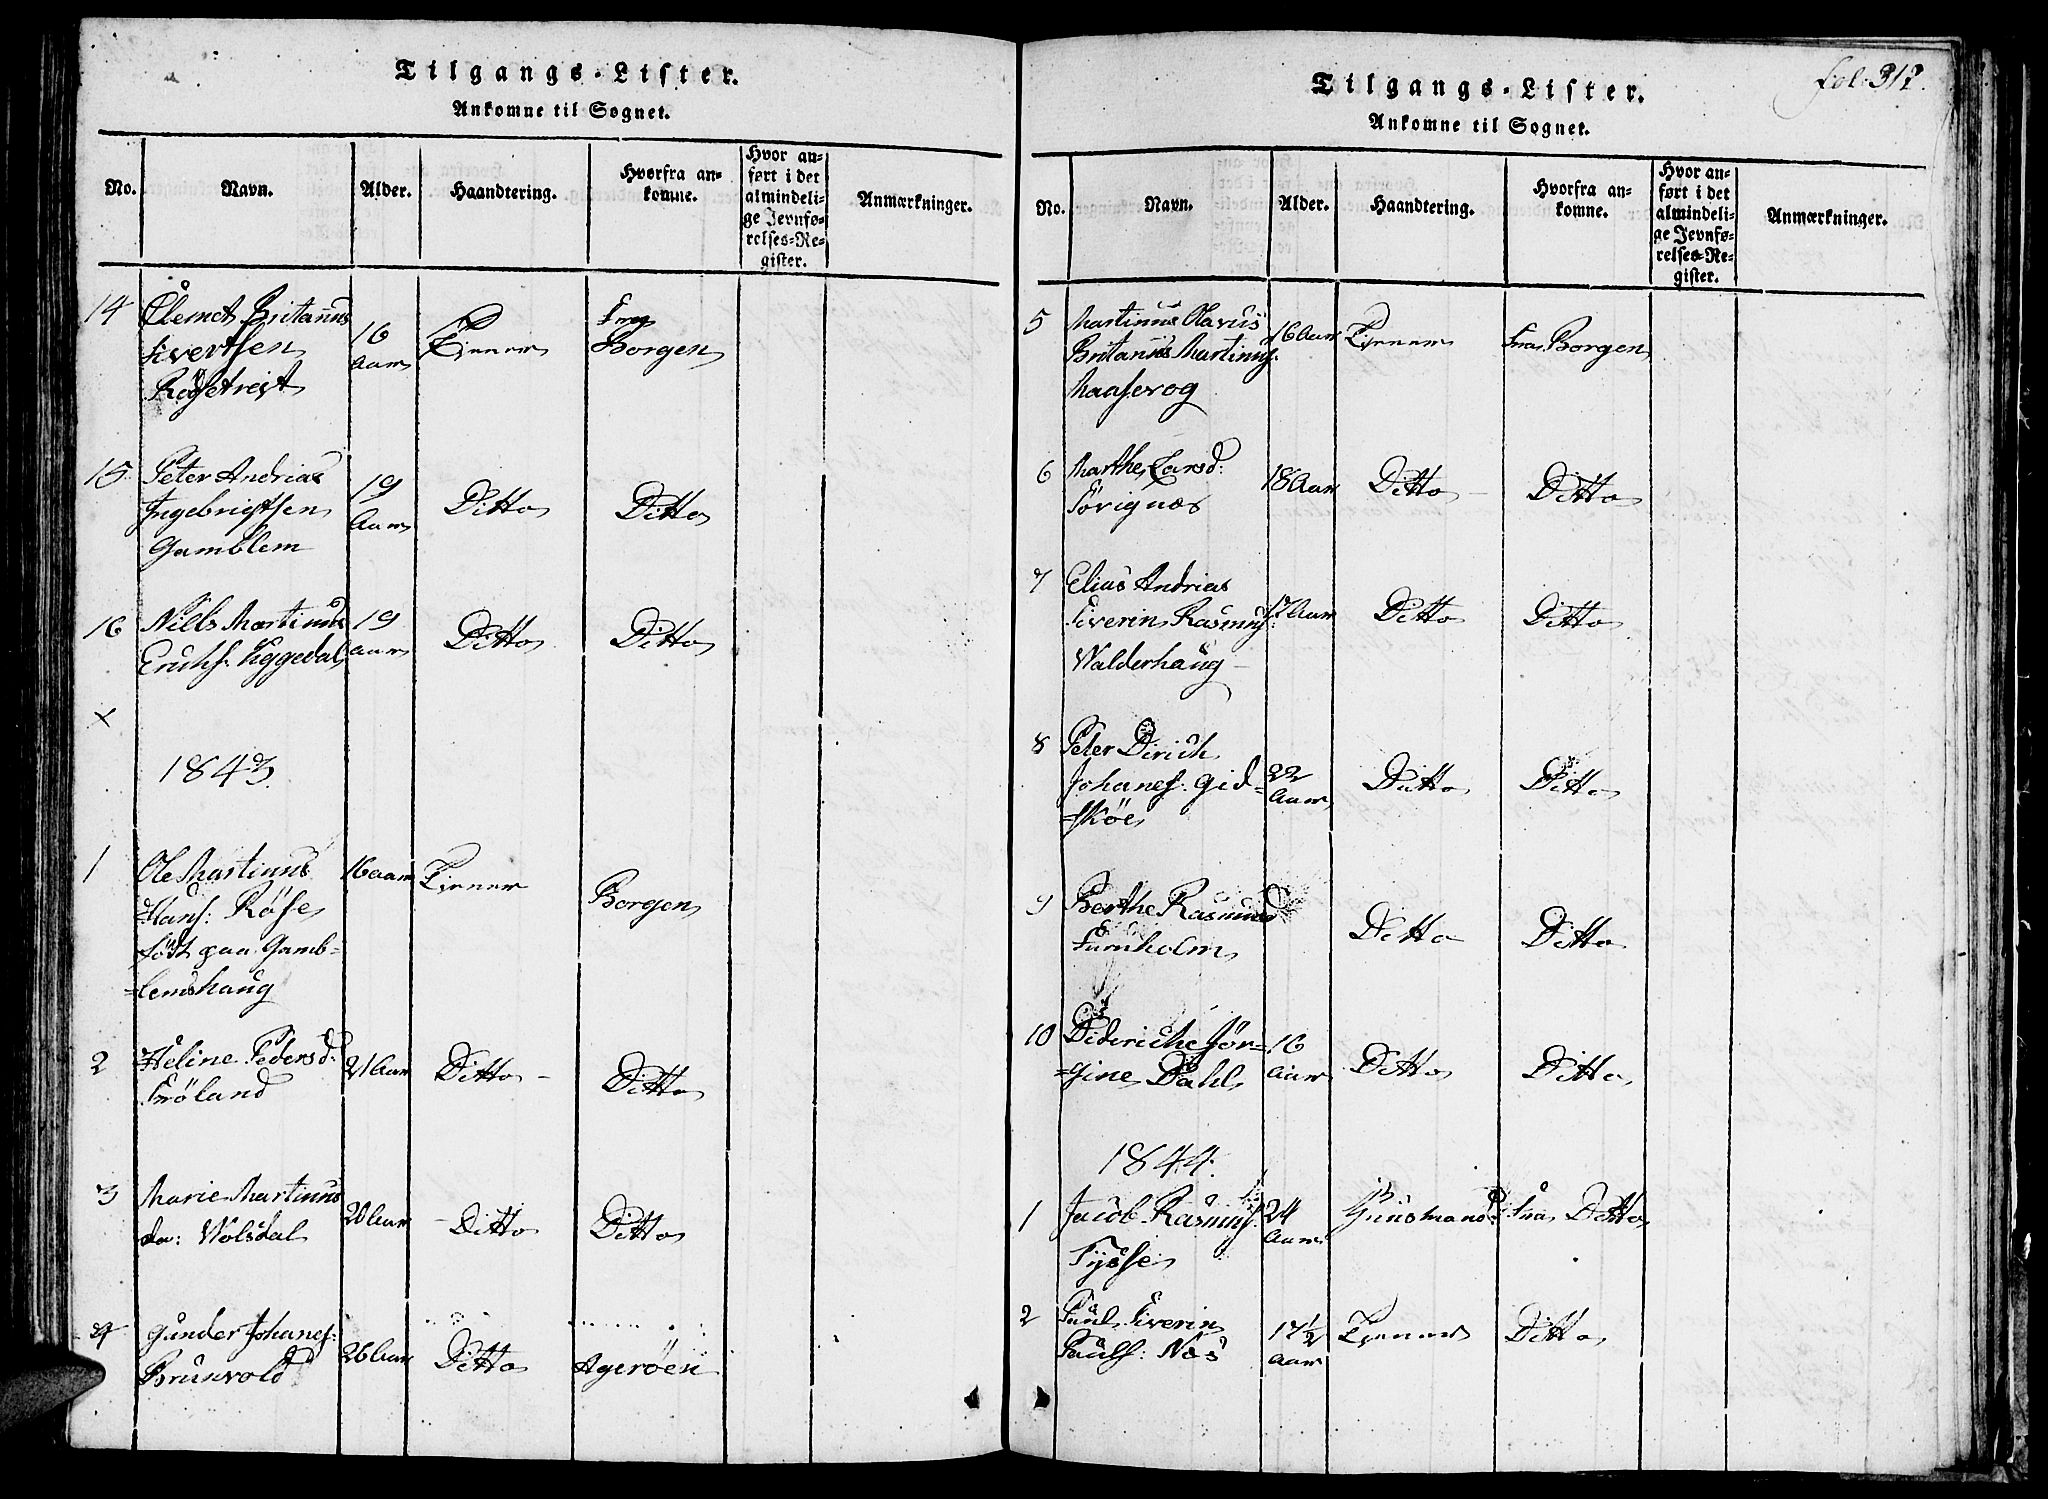 Tilgangs-Lister.
Ankomne til Sognet.
No. Navn. Alder. Haandtering. Hvorfra ankomne. Hvor anført i det almindelige Jevnførelses-Register. Anmærkninger.
14 Clemet Britanus 16 Aar Tjener Fra Borgen
Sivertsen
15 Peter Andrias 19 Aar Ditto Ditto
Ingebrigtsen
Gamblem
16 Nills Martinus 19 Aar Ditto Ditto
Erichs. Eggedal
x
1843.
1 Ole Martinus 16 Aar Tjener Borgen
Hans: Röse
föd paa Gamb-
=lemshaug
2 Heline Pedersd: 21 Aar Ditto - Ditto
Fröland
3 Marie Martinus 20 Aar - Ditto Ditto
da: Wolsdal
4 Gunder Johanes: 26 Aar Ditto Ageröen
Brunvold
fol: 312.
Tilgangs-Lister.
Ankomne til Sognet.
No. Navn. Alder. Haandtering. Hvorfra ankomne. Hvor anført i det almindelige Jevnførelses-Register. Anmærkninger.
5 Martinus Olavus 16 Aar Tjener Fra Borgen
Britanus Martinus:
6 Marthe Larsd: 18 Aar Ditto - Ditto
7 Elias Andrias 17 Aar Ditto Ditto
Siverin Rasmus:
Walderhaug -
8 Peter Dirich 22 Aar Ditto Ditto
Johanes: Gid-
=sköe
9 Berthe Rasmusd Ditto Ditto
10 Dideriche Jör- 16 Aar Ditto Ditto
=gine Dahl
1844.
1 Jacob Rasmus: 24 Aar Huusmand Fra Ditto
2 Paul Siverin 17½ Aar Tjener Ditto
Pauls: Næs